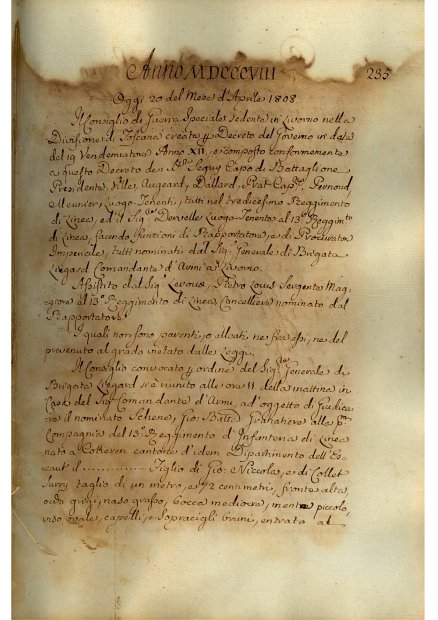 Anno MDCCCVIII 235
Oggi 20 del Mese d'Aprile 1808
Il Consiglio di Guerra Speciale Sedente in Livorno nella
Divisione di Toscana creato p Decreto del Governo in data
del 19 Vendemiatore Anno XII, e composto conformemente
a questo Decreto dei Sig.ri Seguy Capo di Battaglione
Presidente, Augeard, Dallard, Prat Cap.ni, Pernoud,
Meunier, Luogo-Tenenti, tutti nel tredicesimo Reggimento
di Linea, ed il Sig.re Luogo-Tenente al 13.º Reggim.to
di Linea, facendo funzioni di Rapportatore, e di Procurator
Imperiale, tutti nominati dal Sig.re Generale di Brigata
Liegard Comandante d'Armi a Livorno.
Assistito dal Sig.re Leroux, Pietro Louis Sergente Mag-
giore al 13.º Reggimento di Linea Cancelliere nominato dal
Rapportatore.
I quali non sono parenti, o alleati, ne fra essi, ne del
prevenuto al grado vietato dalle Leggi.
Il Consiglio convocato p ordine del Sig.re Generale di
Brigata Liegard s'è riunito alle ore 11 della mattina in
Casa del Sig.re Comandante d'Armi, ad oggetto di Giudica-
re il nominato Schene, Gio: Batta Granatiere alla p.ma
Compagnia del 13.º Reggimento d'Infanteria di Linea
nato a Cotheron cantone d'idem Dipartimento dell'Es-
caut il ............... Figlio di Gio: Niccola, e di Collet
Surry taglio di un metro, e 72 centimetri, fronte alta,
occhi grigi, naso grosso, bocca mediocre, mento piccolo,
viso ovale, capelli, e sopracigli bruni, entrato al